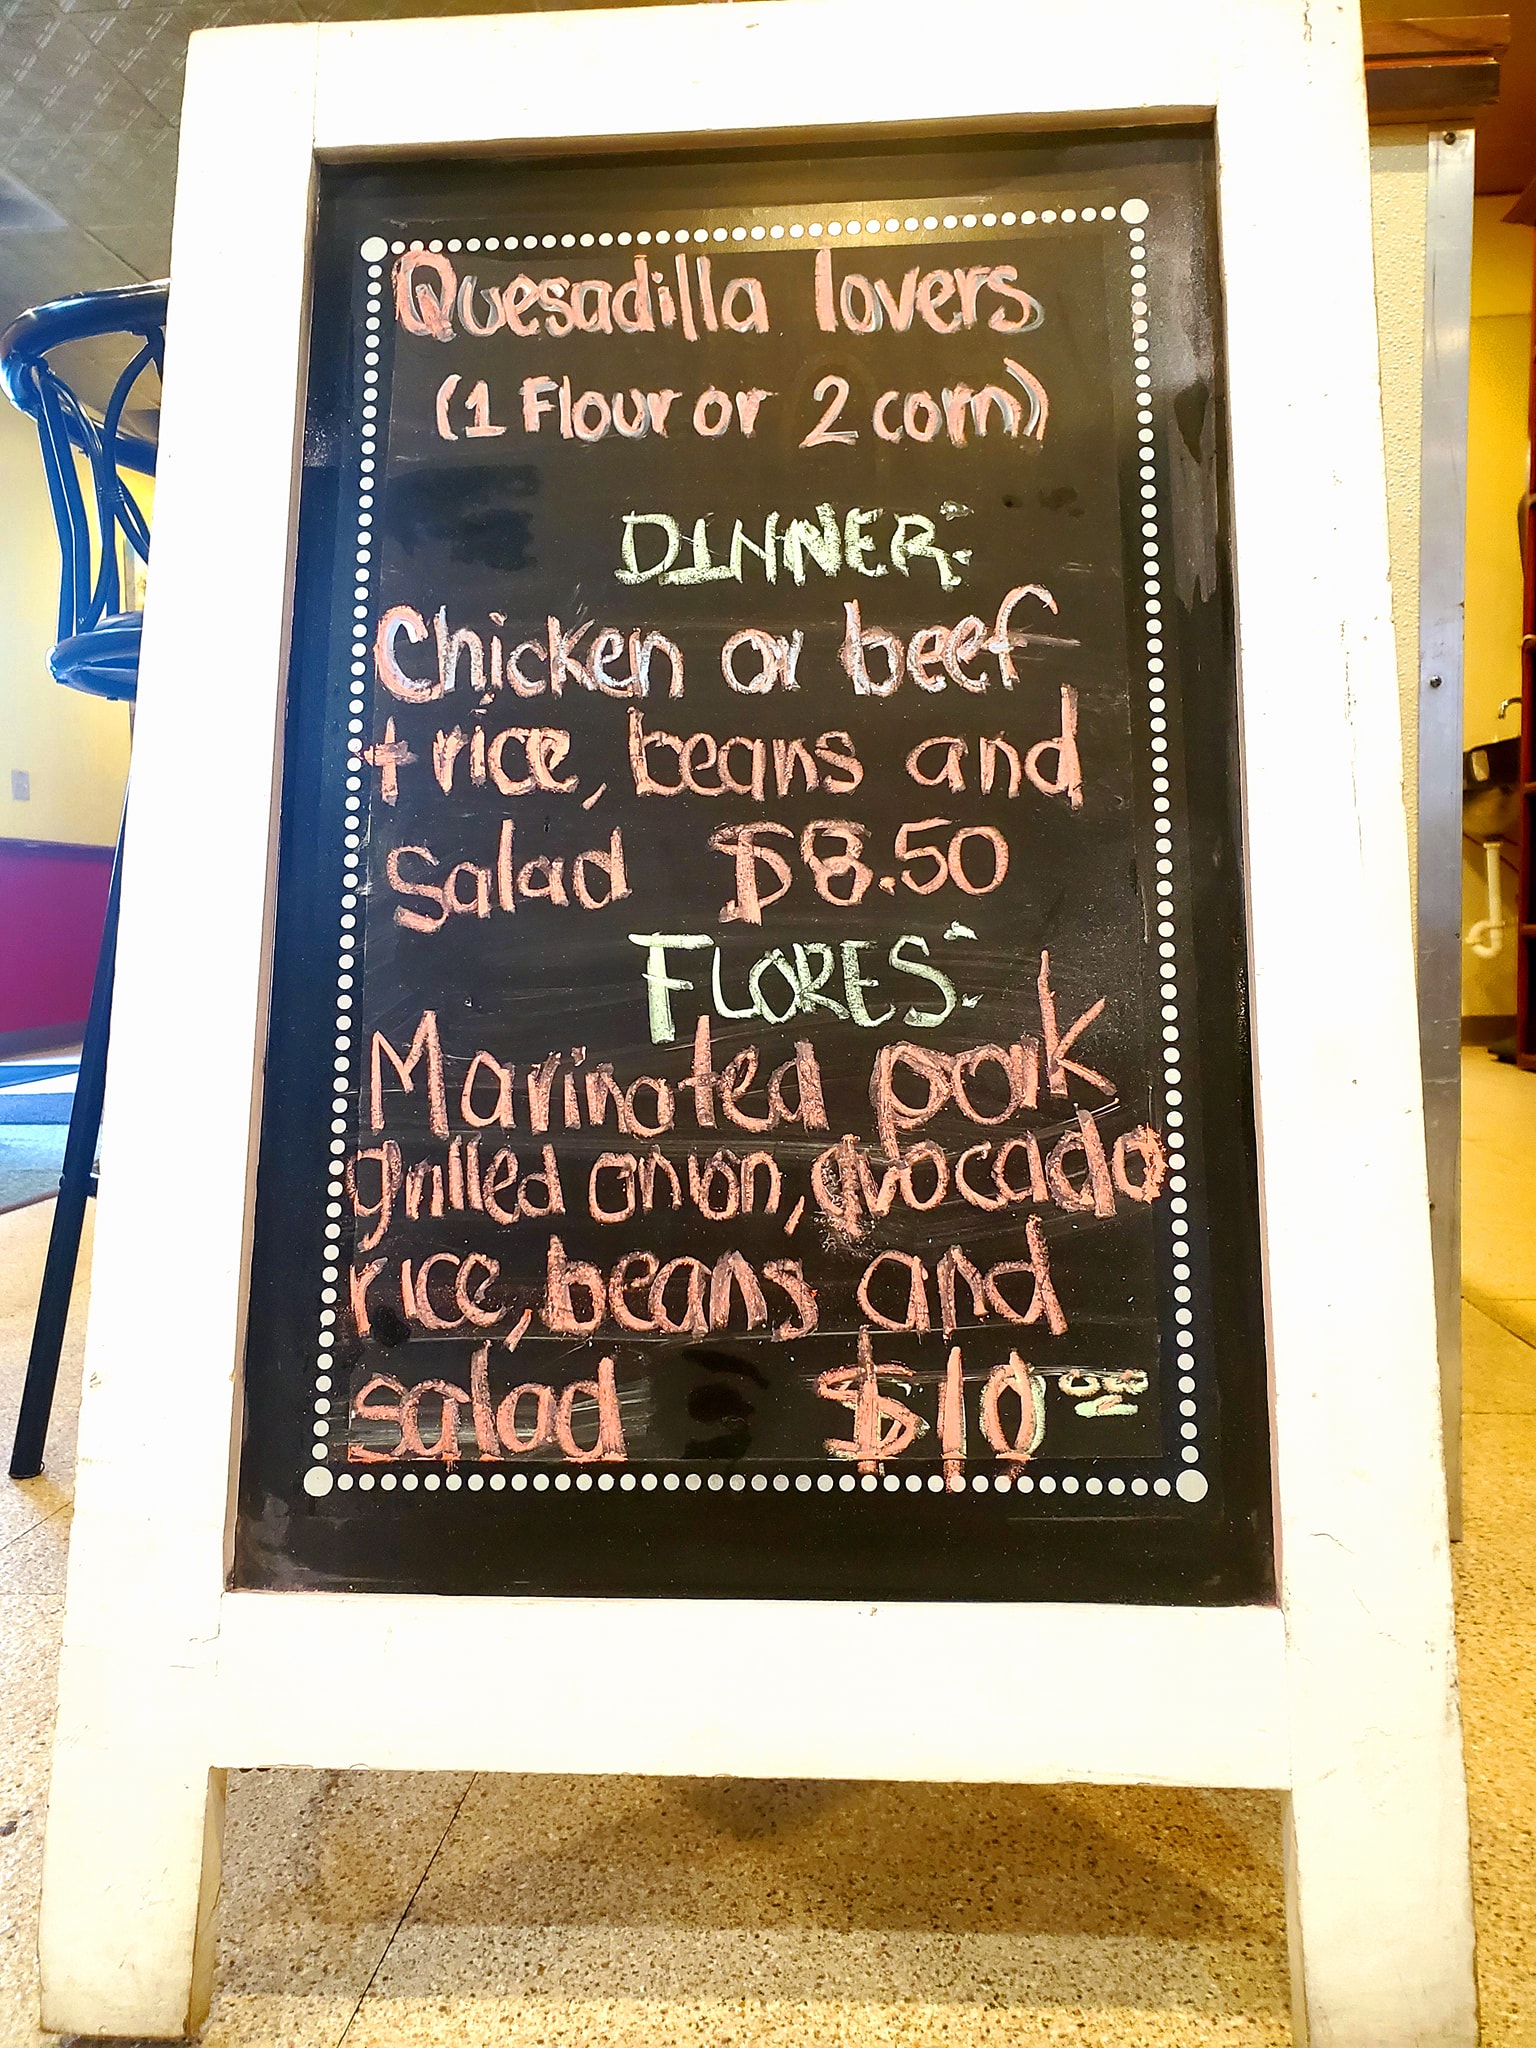 Quesadilla lovers
(1 Flour or 2 corn)
DINNER:
Chicken or beef
+ rice, beans and
Salad $8.50
FLORES:
Marinated pork
grilled onion, avocado
rice, beans and
salad $10.00